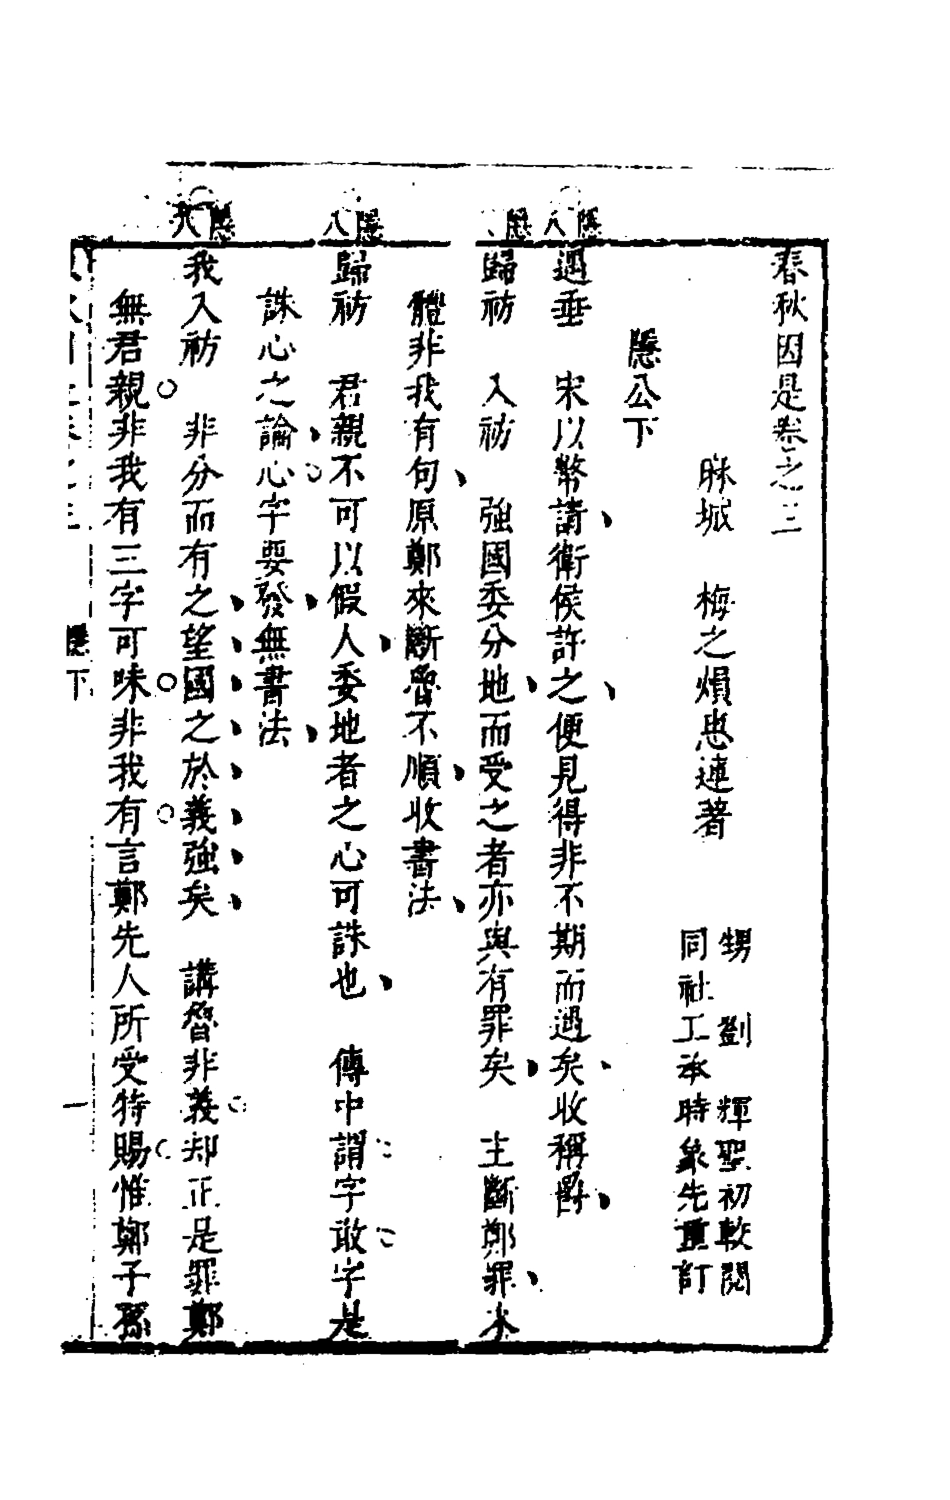 春秋因是卷之三
麻城　梅之熉惠連著
甥　劉　輝聖初較閱
同社工承時象先重訂
隱公下
隱八
遇垂　宋以幣請衛侯許之便見得非不期而遇矣收稱爵
隱
歸祊　入祊　強國委分地而受之者亦與有罪矣　主斷鄭罪本
體非我有句原鄭來斷魯不順收書法
隱八
歸祊　君親不可以假人委地者之心可誅也　傳中謂字敢字是
誅心之論心字要發無書法
隱八
我入祊　非分而有之望國之於義強矣　講魯非義却正是罪鄭
無君親非我有三字可味非我有言鄭先人所受特賜惟鄭子孫
隱下
一